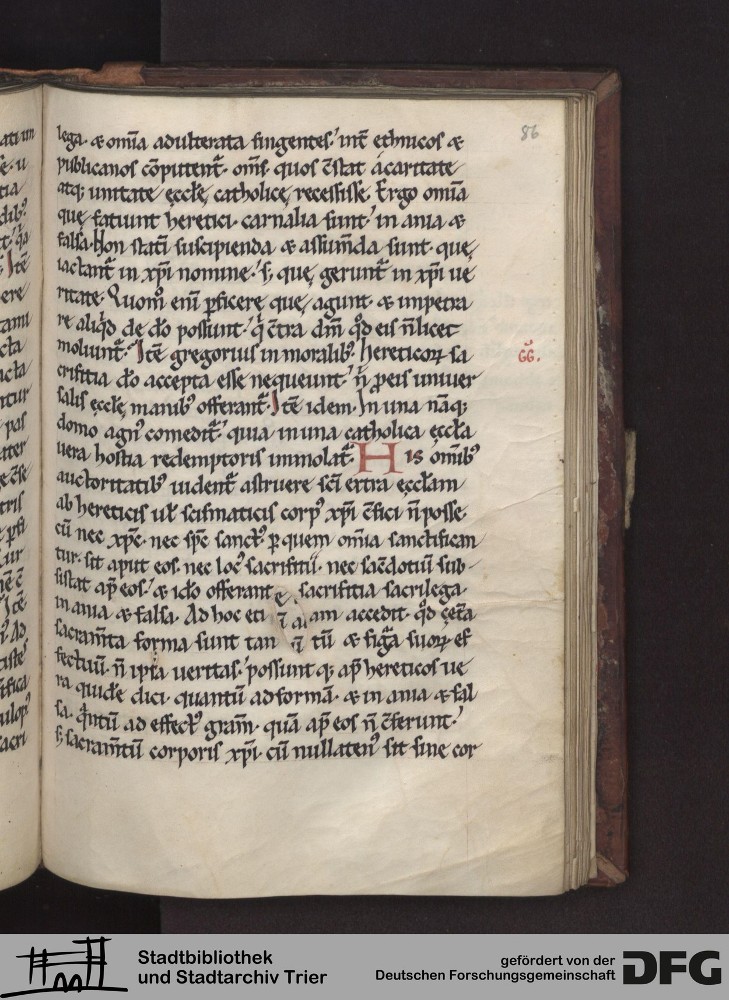 86
lega. & om̄ia adulterata fingentes. int̄ ethnicos &
publicanos cōputent᷑. om̄s quos c̄stat a caritate
atq; unitate ęccłę catholicę recessisse. Ergo om̄ia
que, fatiunt heretici. carnalia sunt. in ania &
falsa. Non statī suscipienda & assum̄da sunt. que,
iactant᷑ in xp̄i nomine. s; que, gerunt᷑ in xp̄i ue
ritate. Quom̊ eni ꝑficere que, agunt. & impetra
re aliq̇d de do possunt. q̇ c̄tra dm̄ q̇d eis n̄ licet
moliunt᷑. Itē gregorius in moralib; hereticoꝝ sa
crifitia do accepta esse nequeunt. n̄ ꝓ eis uniuer
salis ęccłę manib; offerant᷑. Itē idem. In una nāq;
domo agn᷒ comedit᷑. quia in una catholica ęccła
uera hostia redemptoris immolat᷑. His omīb᷒
auctoritatib᷒ uident᷑ astruere sci extra ęccłam
ab hereticis ul̵ scismaticis corp᷒ xp̄i c̄fici n̄ posse.
cū nec xp̄c. nec sp̄c sanct᷒ ꝑ quem om̄ia sanctifican
tur. sit aput eos. nec loc᷒ sacrifitii. nec sac̄dotiū sub-
sistat ap̄ eos. & ido offerant sacrifitia sacrilega.
in ania & falsa. Ad hoc eti am accedit. q̇d cęt̄a
sacram̄ta forma sunt tan tū & fig̊a suoꝝ ef
fectuū. n̄ ipsa ueritas. possunt q; ap̄ hereticos ue
ra quidē dici. quantū ad formā. & in ania & fal
sa. q̊ntū ad effect᷒ gram̄. quā ap̄ eos n̄ c̄ferunt.
s; sacram̄tū corporis xp̄i. cū nullaten᷒ sit sine cor
GG.
Stadtbibliothek
und Stadtarchiv Trier
gefördert von der
Deutschen Forschungsgemeinschaft
DFG